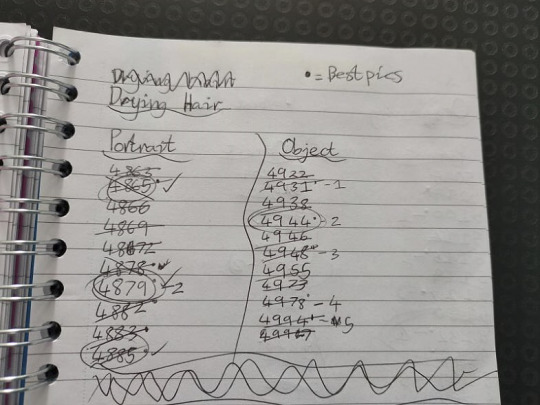 • = Best pics
Drying Hair
Portrait
4863
4865 ✓
4866
4869
4872
4878 ✓
4879 - 2
4882
4883
4885 ✓
Object
4922
4931 - 1
4938
4944 - 2
4946
4948 - 3
4955
4973
4978 - 4
4994 - 5